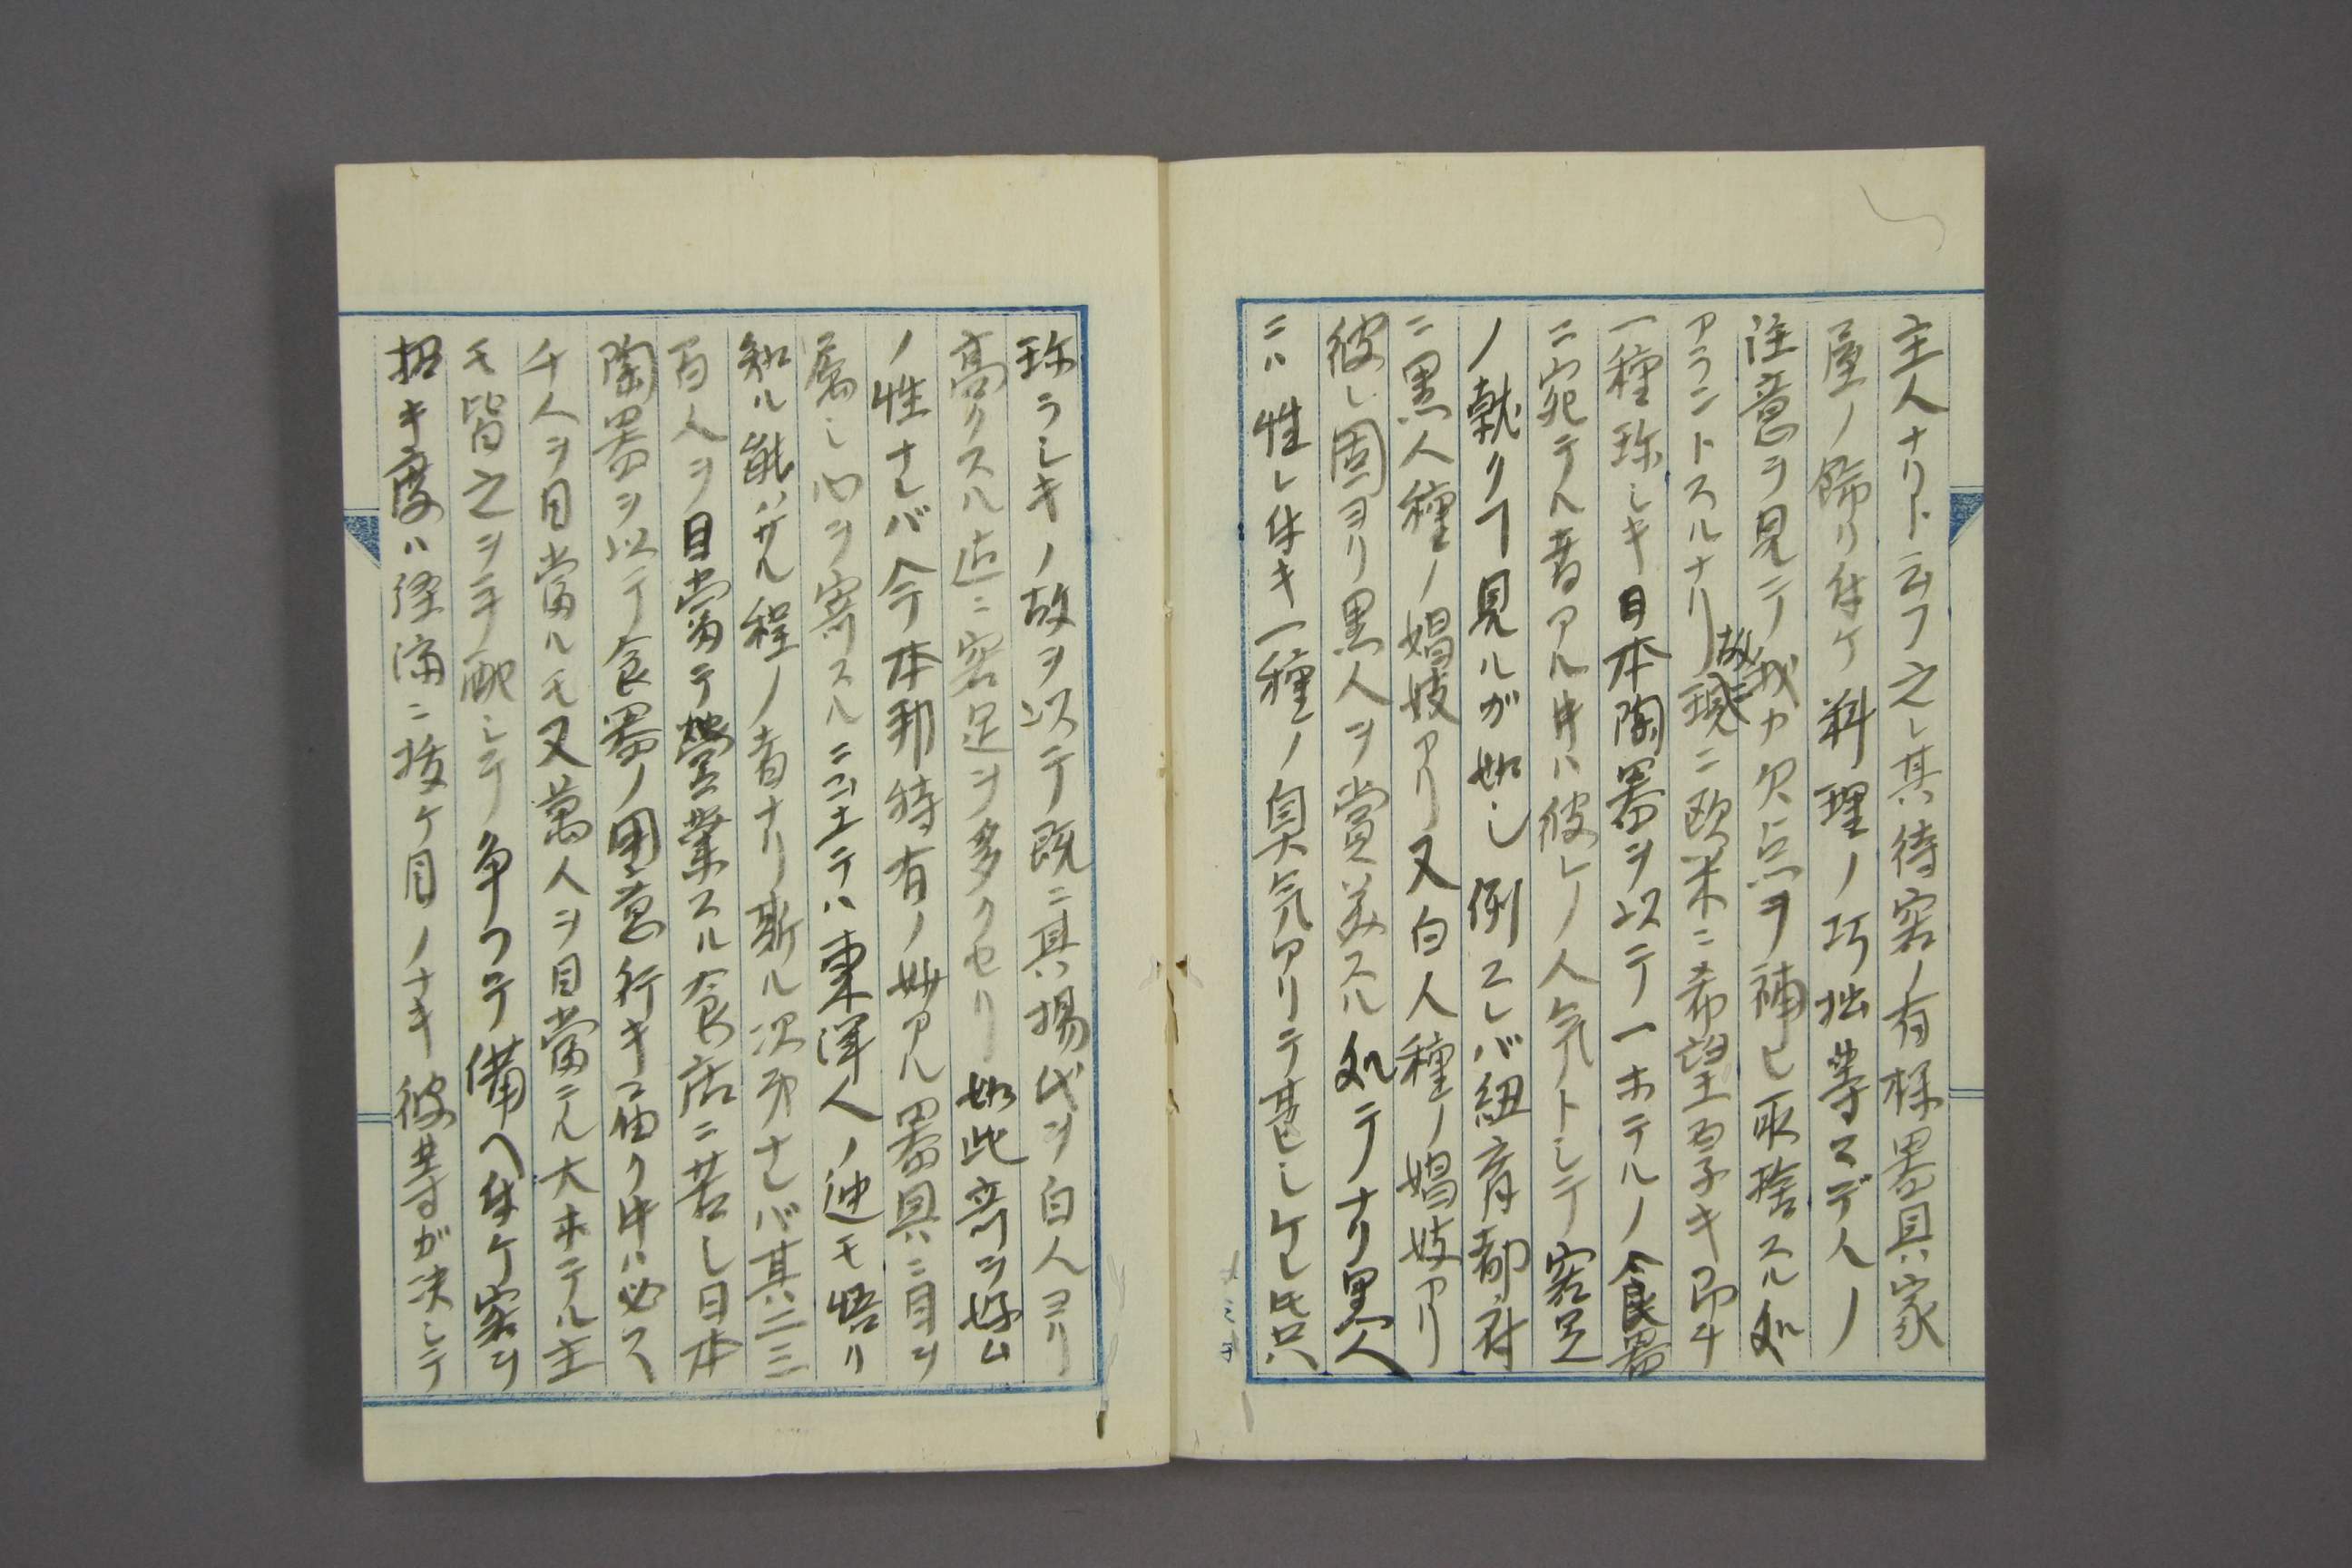 主人ナリト云フ之レ其待客ノ有様器具家
屋ノ飾リ付ケ料理ノ巧拙等マデ人ノ
注意ヲ見テ我カ欠点ヲ補ヒ取捨スル処
アラントスルナリ故ニ現ニ欧米ニ希望厚キ即チ
一種珍シキ日本陶器ヲ以テ一ホテルノ食器
ニ宛テヘ者アル牛ハ彼レノ人気トシテ客足
ノ就クヿ見ルガ如シ例エレバ紐育都府
ニ黒人種ノ娼妓アリ又白人種ノ娼妓アリ
彼レ固ヨリ黒人ヲ賞美スル処テナリ黒人
ニハ性レ付キ一種ノ臭気アリテ甚ヒシケレ𪜈只
珍ラシキノ故ヲ以テ既ニ其揚代ヲ白人ヨリ
高クスル迠ニ客足ヲ多クセリ如此斎ヲ好ム
ノ性ナレバ今本邦特有ノ妙アル器具ニ目ヲ
属シ心ヲ寄スルニ至テハ東洋人ノ迚モ悟リ
知ル能ハサル程ノ者ナリ斯ル次第ナレバ其二三
百人ヲ目當テ営業スル食店ニ若シ日本
陶器ヲ以テ食器ノ用意行キ届ク牛ハ必ス
千人ヲ目當ルモ又萬人ヲ目當ニル大ホテル主
モ皆之ヲ心配シテ争フテ備ヘ付ケ客ヲ
招キ度ハ経済ニ抜ケ目ノナキ彼等ガ決シテ